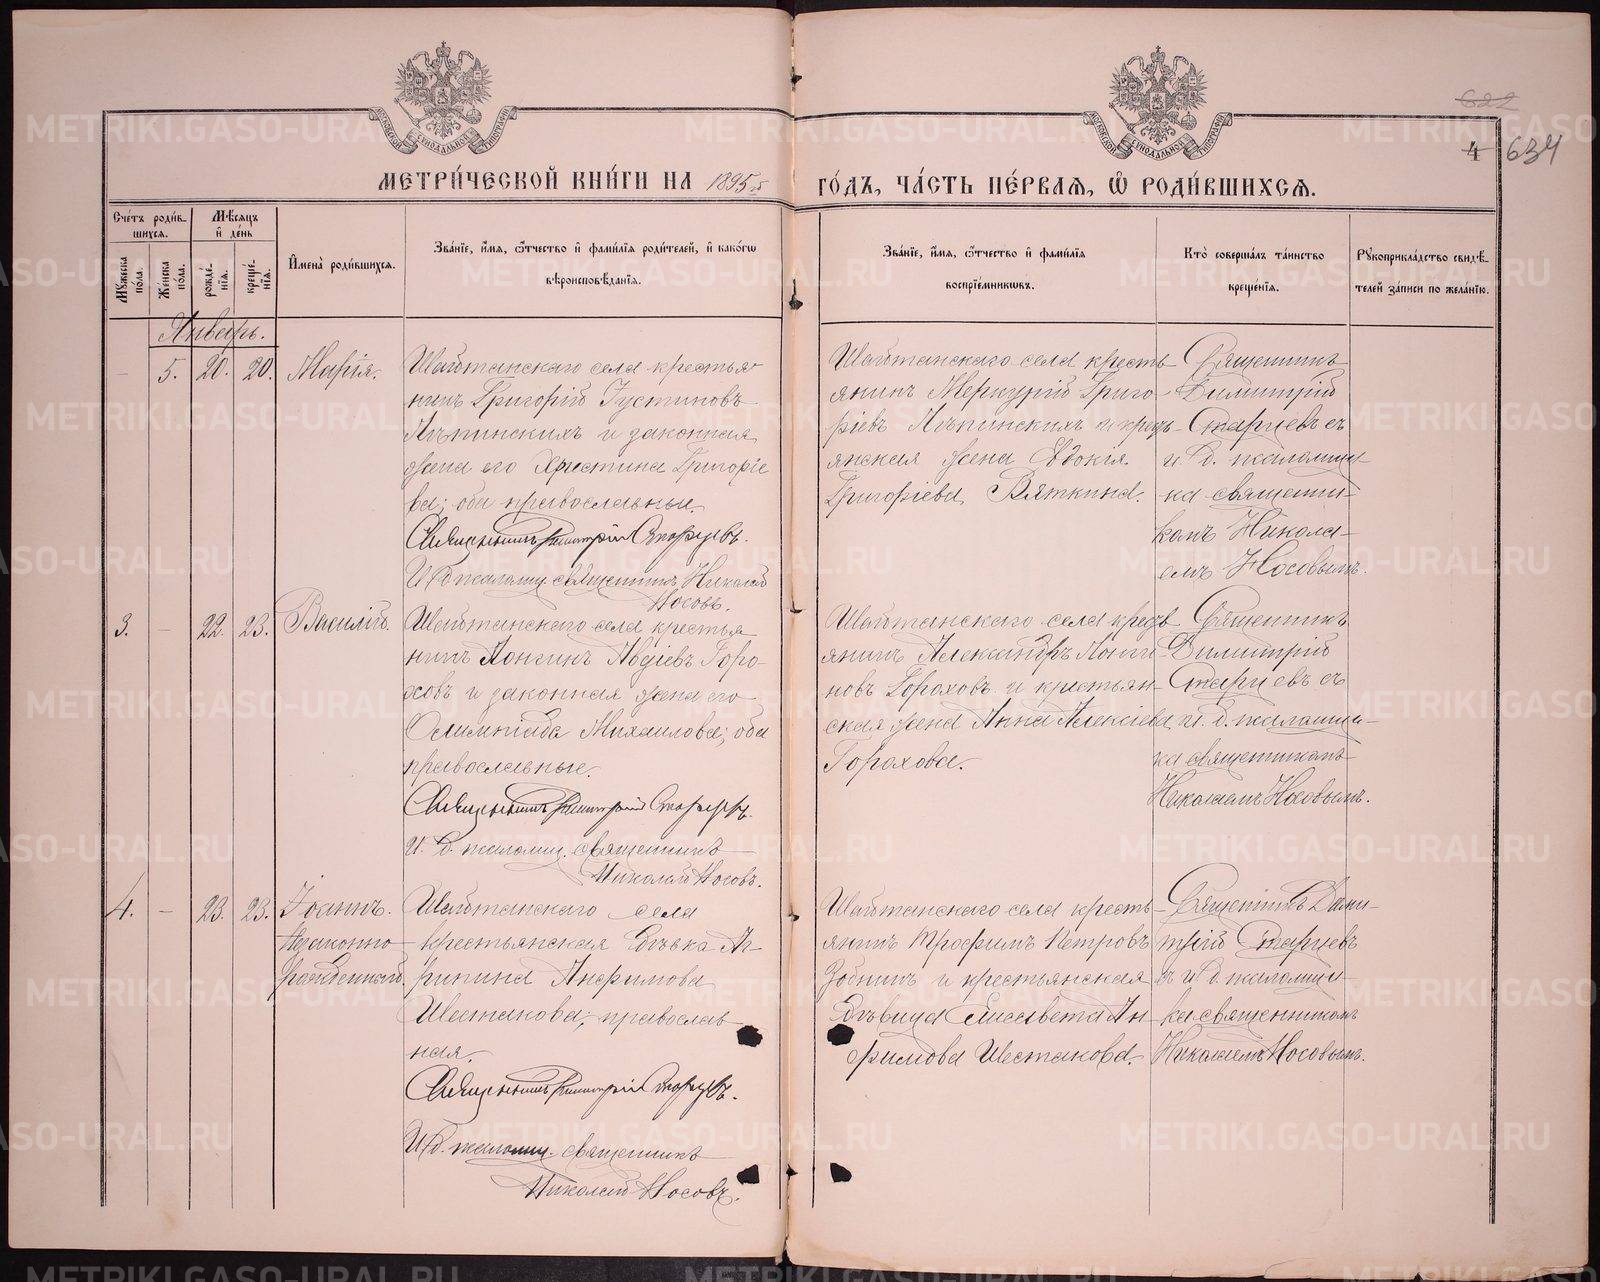 МОСКОВСКОЙ СѴНОДАЛЬНОЙ ТИПОГРАФІИ
МОСКОВСКОЙ СѴНОДАЛЬНОЙ ТИПОГРАФІИ
622
4 634
МЕТРИ́ЧЕСКОЙ КНИ́ГИ НА 1895й ГО́ДЪ, ЧА́СТЬ ПЕ́РВАЯ, Ѽ РОДИ́ВШИХСЯ.
Сче́тъ роди́в-
шихся.
Мѣсяцъ
и҆ де́нь
Мꙋжеска
по́ла.
Же́нска
по́ла.
рожде́-
нїя.
креще́-
нїя.
И҆мена̀ роди́вшихся.
Зва́нїе, и҆́мя, ѻ҆́тчество и҆ фами́лїя роди́телей, и҆ како́гѡ
вѣроисповѣ́данїя.
Зва́нїе, и҆́мя, ѻ҆́тчество и҆ фами́лїя
воспрїе́мникѡвъ.
Кто̀ соверша́лъ та́инство
креще́нїя.
Рꙋкоприкла́дство свидѣ́-
телей за́писи по жела́нїю.
Январь.
– 5. 20. 20. Марія.
Шайтанскаго села крестья-
нинъ Григорій Густиновъ
Лѣпинскихъ и законная
жена его Христина Григоріе
ва; оба православные.
Священникъ Димитрій Старцевъ.
И. д. псаломщ. священникъ Николай
Носовъ.
Шайтанскаго села кресть-
янинъ Меркурій Григо-
ріевъ Лѣпинскихъ и кресть-
янская жена Евдокія
Григоріева Вяткина.
Священникъ
Димитрій
Старцевъ съ
и. д. псаломщи-
ка священни-
комъ Никола-
емъ Носовымъ.
3. – 22. 23. Василій.
Шайтанскаго села крестья
нинъ Лонгинъ Авдіевъ Горо-
ховъ и законная жена его
Олимпіада Михаилова; оба
православные.
Священникъ Димитрій Старцевъ.
И. д. псаломщ. священникъ
Николай Носовъ.
Шайтанскаго села кресть
янинъ Александръ Лонги
новъ Гороховъ и крестьян-
ская жена Анна Алексіева
Горохова.
Священникъ
Димитрій
Старцевъ съ
и. д. псаломщи-
ка священникомъ
Николаемъ Носовымъ.
4. – 23. 23. Іоаннъ.
Незаконно-
рожденный.
Шайтанскаго села
крестьянская дѣвка Аг-
рипина Анфимова
Шестакова; православ
ная.
Священникъ Димитрій Старцевъ.
И. д. псаломщ. священникъ
Николай Носовъ.
Шайтанскаго села кресть-
янинъ Трофимъ Петровъ
Зобнинъ и крестьянская
дѣвица Елисавета Ан-
фимова Шестакова.
Священникъ Дими-
трій Старцевъ
съ и. д. псаломщи-
ка священникомъ
Николаемъ Носовымъ.
METRIKI.GASO-URAL.RU